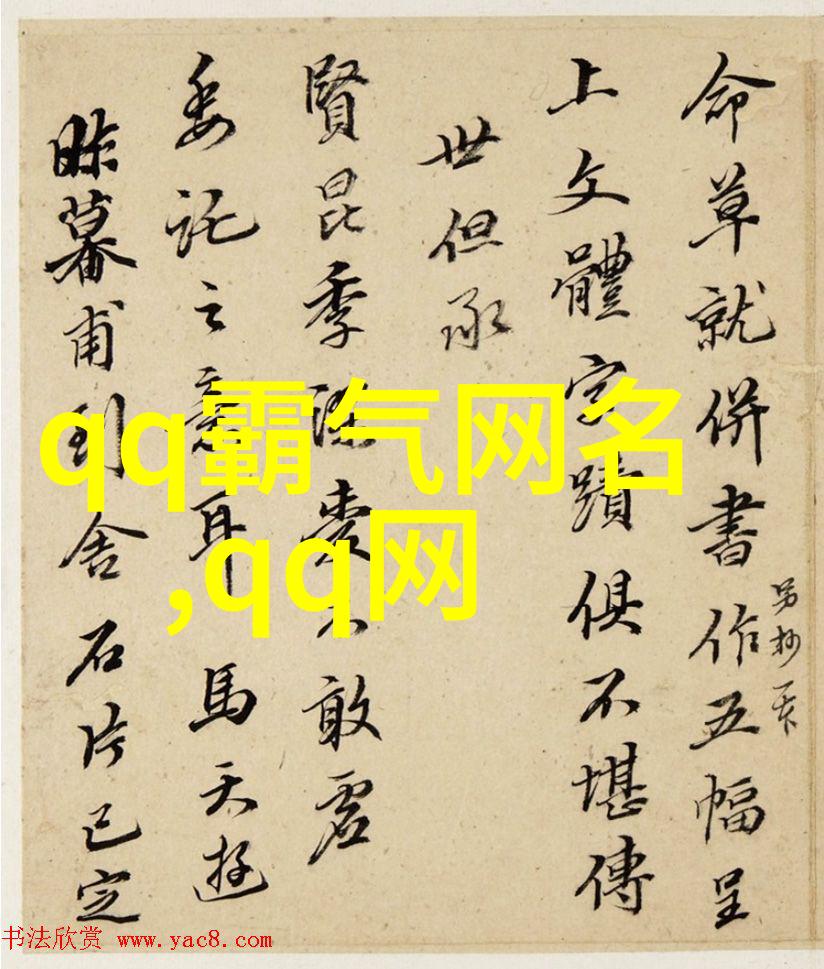 命草就併書作五幅呈
另抄一本
上文體字蹟俱不堪傳
世但承
賢昆季深愛不敢虛
委託之意耳 馬天遊
昨暮甫到舍石片已定
qq霸气网名
,qq网
书法欣赏 www.yac8.com